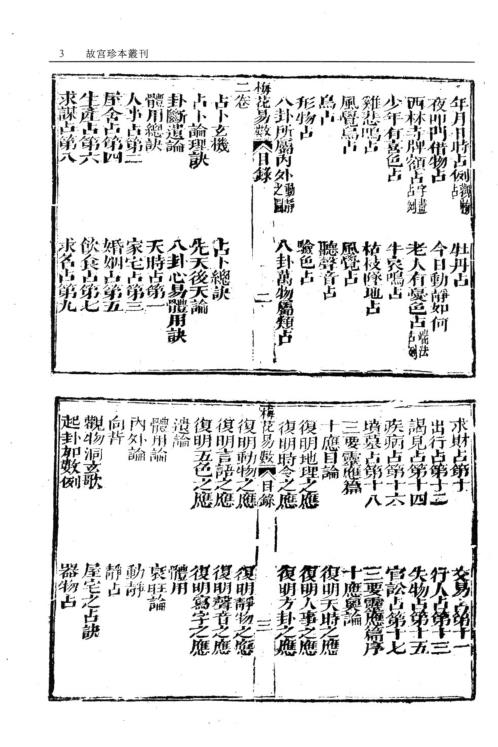 3 故宮珍本叢刊
年月日時占例 牡丹占
夜叩門借物占 今日動靜如何
西林寺牌額占字畫占例 老人有憂色占端法占例
少年有喜色占 牛哀鳴占
雞悲鳴占 枯枝墜地占
風覺鳥占 風覺占
鳥占 聽聲音占
形物占 驗色占
八卦所屬內外動靜 八卦萬物屬類占
梅花易數 目錄 二
二卷
占卜玄機 占卜總訣
占卜論理訣 先天後天論
卦斷遺論 八卦心易體用訣
體用總訣 天時占第一
人事占第二 家宅占第三
屋舍占第四 婚姻占第五
生產占第六 飲食占第七
求謀占第八 求名占第九
求財占第十 交易占第十一
出行占第十二 行人占第十三
謁見占第十四 失物占第十五
疾病占第十六 官訟占第十七
墳墓占第十八 三要靈應篇序
三要靈應篇 十應奧論
十應目論 復明天時之應
復明地理之應 復明人事之應
復明時令之應 復明方卦之應
梅花易數 目錄 三
復明動物之應 復明靜物之應
復明言語之應 復明聲音之應
復明五色之應 復明寫字之應
遺論 體用
體用論 衰旺論
內外論 動靜
向背 靜占
觀物洞玄歌 屋宅之占訣
起卦加數例 器物占